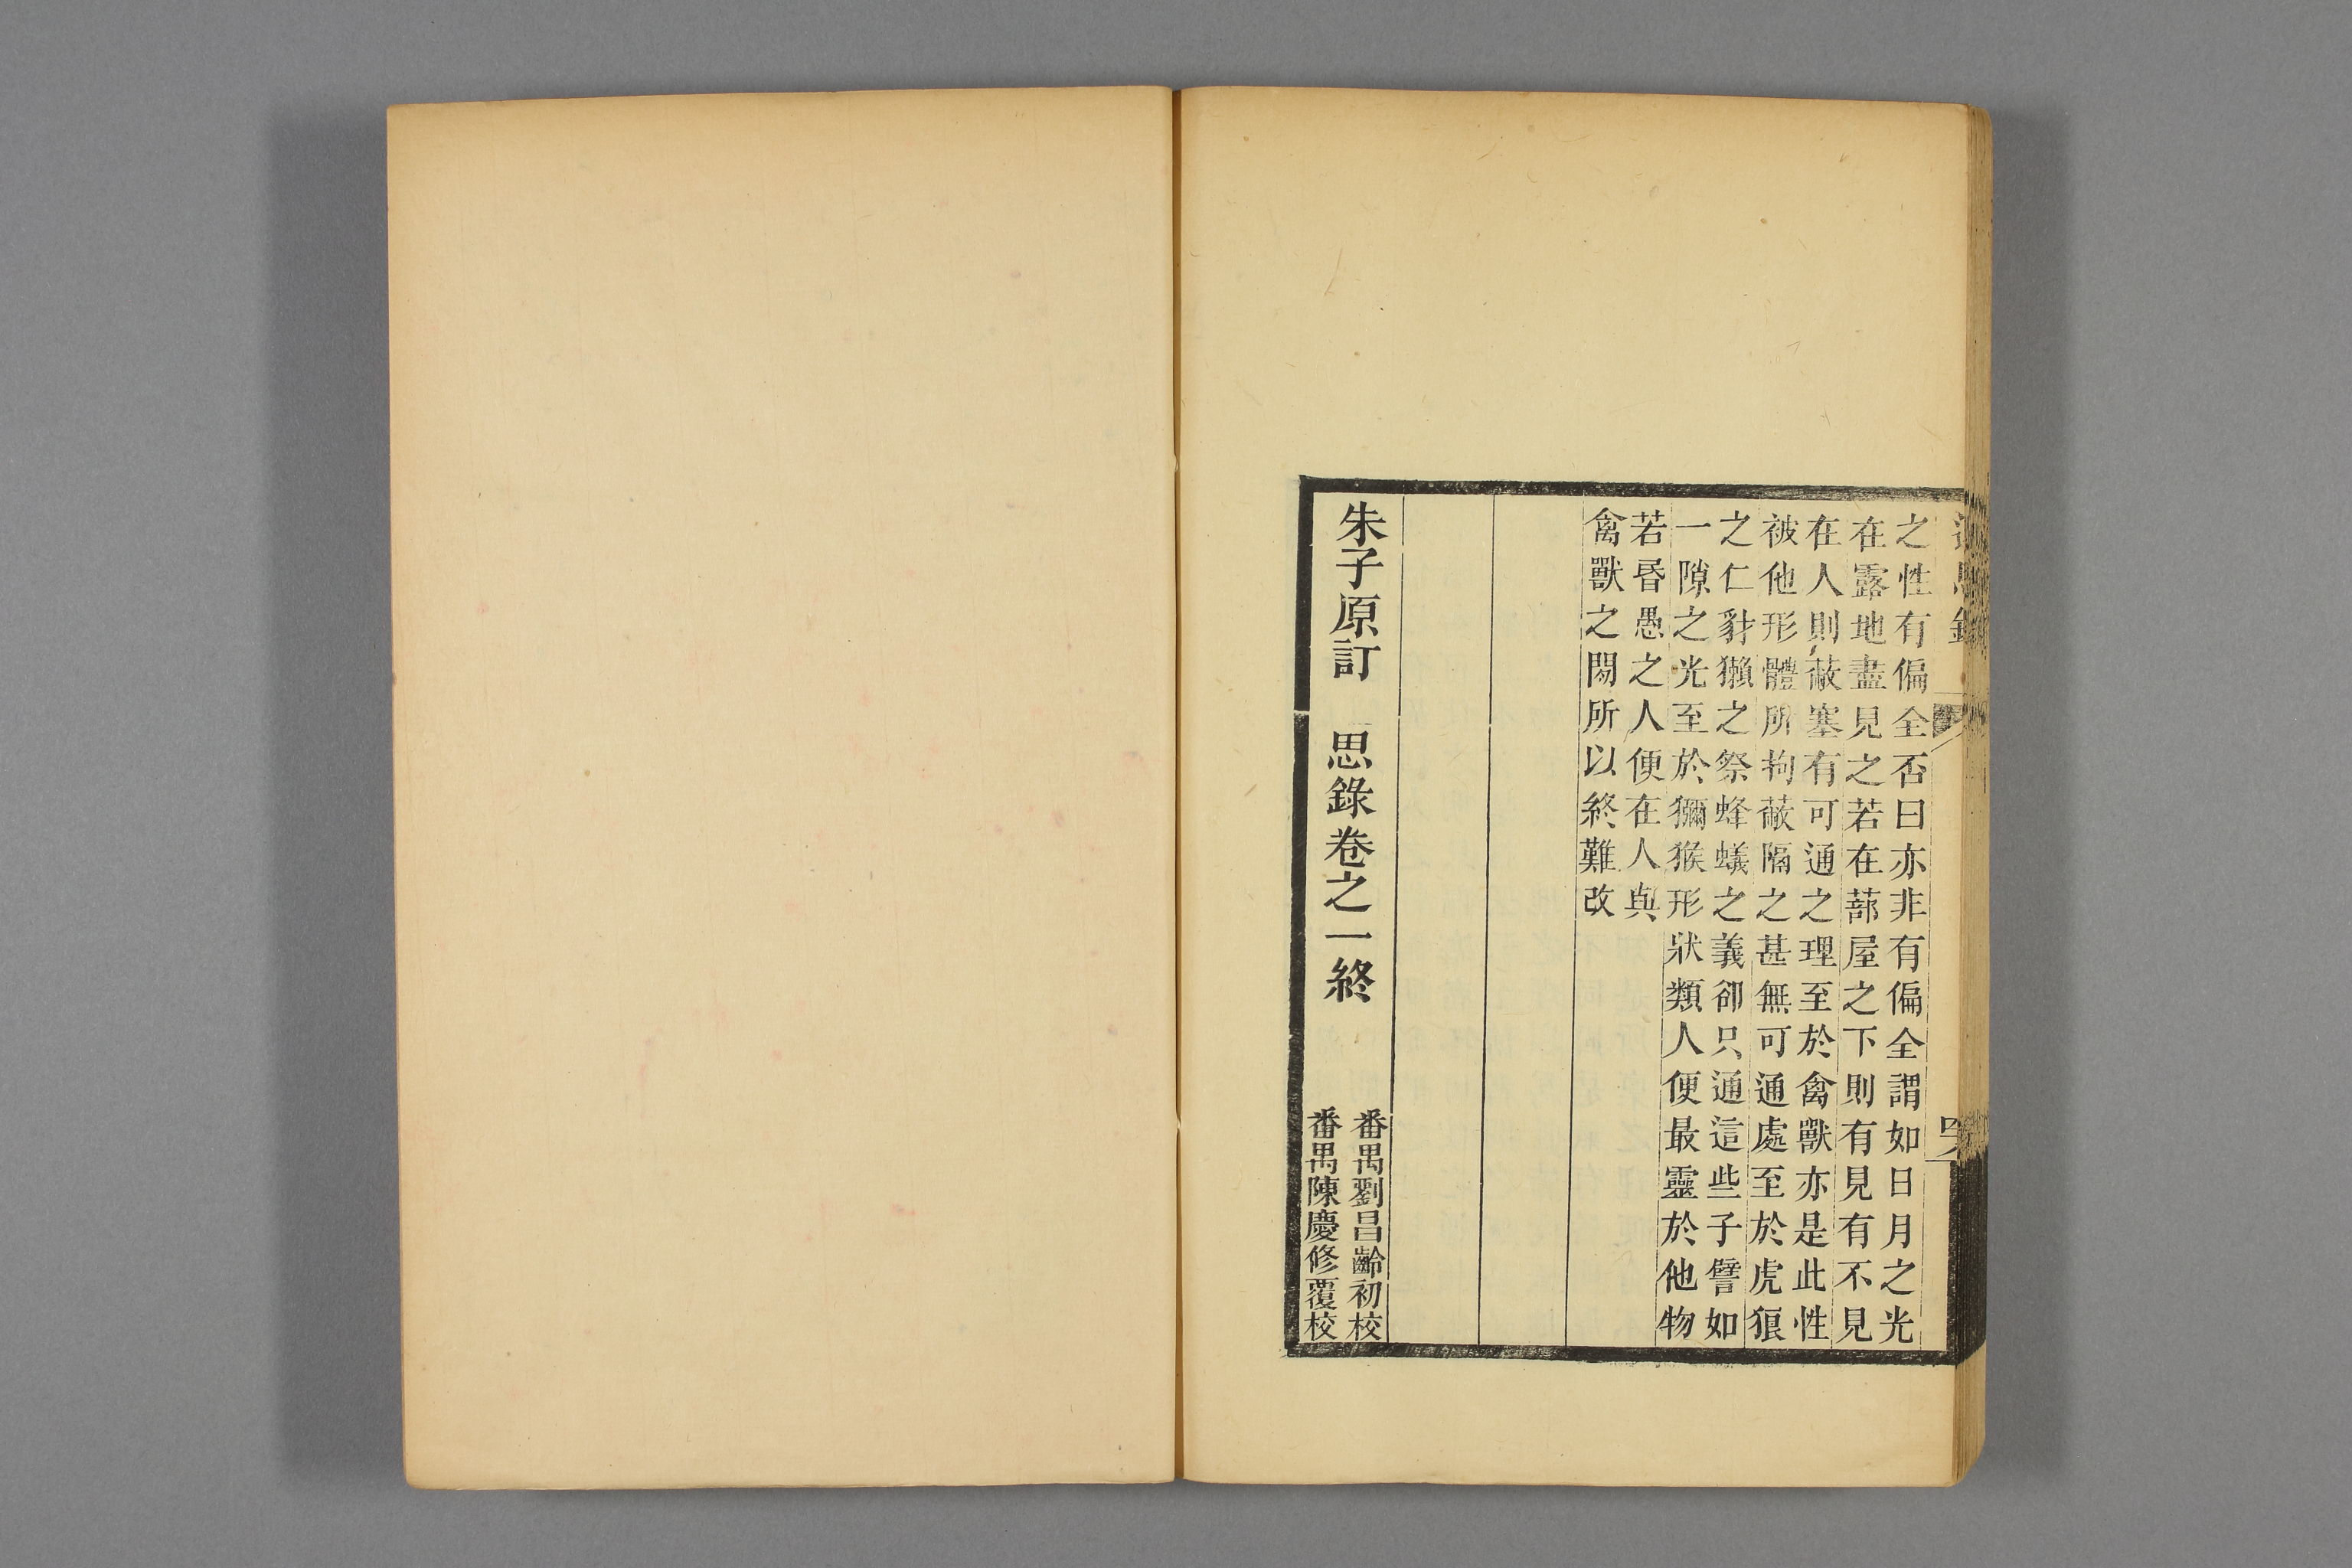 之性有偏全否曰亦非有偏全謂如日月之光
在露地盡見之若在蔀屋之下則有見有不見
在人則蔽塞有可通之理至於禽獸亦是此性
被他形體所拘蔽隔之甚無可通處至於虎狼
之仁豺獺之祭蜂蟻之義卻只通這些子譬如
一隙之光至於獼猴形狀類人便最靈於他物
若昬愚之人便在人與
禽獸之閒所以終難改
朱子原訂 思錄卷之一終
番禺劉昌齡初校
番禺陳慶修覆校